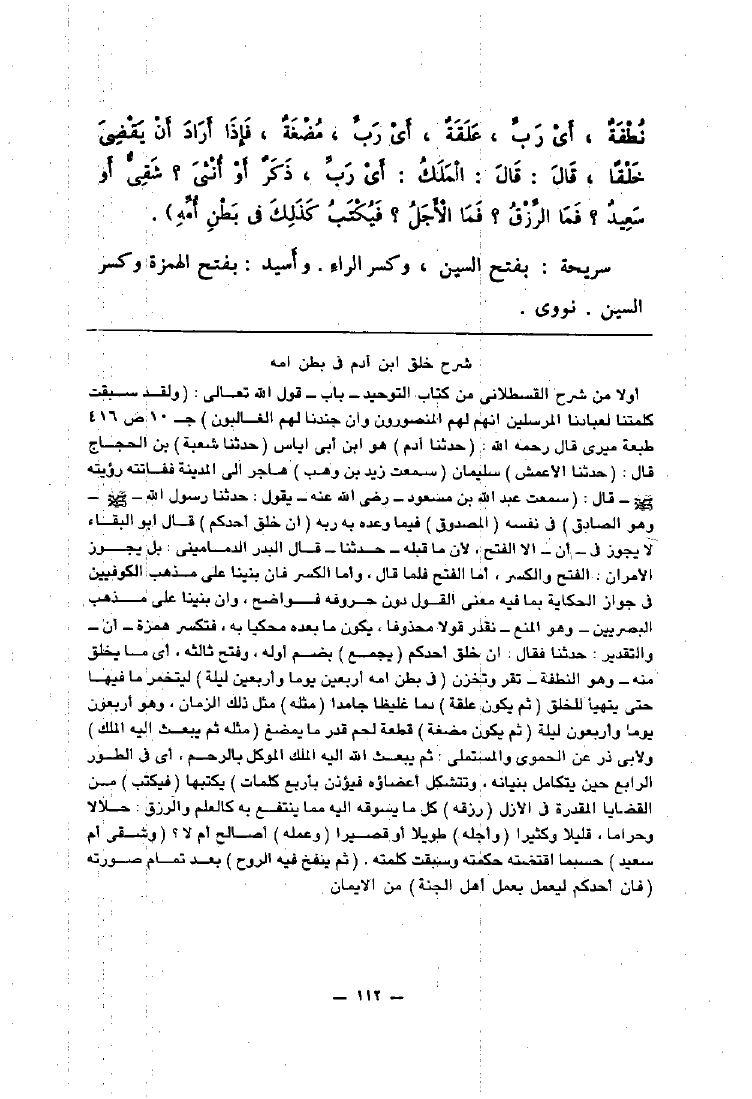 نُطْفَةٌ ، أَىْ رَبِّ ، عَلَقَةٌ ، أَىْ رَبِّ ، مُضْغَةٌ ، فَإِذَا أَرَادَ أَنْ يَقْضِىَ
خَلْقًا ، قَالَ : قَالَ : الْمَلَكُ : أَىْ رَبِّ ، ذَكَرٌ أَوْ أُنْثَىَ ؟ شَقِىٌّ أَو
سَعِيدٌ ؟ فَمَا الرِّزْقُ ؟ فَمَا الْأَجَلُ ؟ فَيُكْتَبُ كَذَلِكَ فى بَطْنِ أُمِّهِ) .
سريحة : بفتح السين ، وكسر الراء . وأسيد : بفتح الهمزة وكسر
السين . نووى .
شرح خلق ابن آدم فى بطن امه
أولا من شرح القسطلانى من كتاب التوحيد ــ باب ــ قول الله تعــالى : (ولقــد ســبقت
كلمتنا لعبادنا المرسلين انهم لهم المنصورون وان جندنا لهم الغـالبون) جـ ١٠ ص ٤١٦
طبعة ميرى قال رحمه الله : (حدثنا آدم) هو ابن أبى اياس (حدثنا شعبة) بن الحجـاج
قال : (حدثنا الاعمش) سليمان (سمعت زيد بن وهب) هـاجر الى المدينة ففـاتته رؤيته
ﷺ ــ قال : (سمعت عبد الله بن مسعود ــ رضى الله عنه ــ يقول : حدثنا رسول الله ــ ﷺ ــ
وهو الصادق) فى نفسه (المصدوق) فيما وعده به ربه (ان خلق أحدكم) قـال أبو البقـاء
لا يجوز فى ــ أن ــ الا الفتح ، لأن ما قبله ــ حــدثنا ــ قــال البدر الدمـامينى : بل يجــوز
الأمران : الفتح والكسر ، أما الفتح فلما قال ، وأما الكسر فان بنينا على مـذهب الكوفيين
فى جواز الحكاية بما فيه معنى القـول دون حـروفه فــواضح ، وان بنينا على مــذهب
البصريين ــ وهو المنع ــ نقدر قولا محذوفا ، يكون ما بعده محكيا به ، فتكسر همزة ــ ان ــ
والتقدير : حدثنا فقال : ان خلق أحدكم (يجمــع) بضــم أوله ، وفتح ثالثه ، أى مــا يخلق
منه ــ وهو النطفة ــ تقر وتخزن (فى بطن امه أربعين يوما وأربعين ليلة) ليتخمر ما فيهـا
حتى يتهيأ للخلق (ثم يكون علقة) دما غليظا جامدا (مثله) مثل ذلك الزمان ، وهو أربعون
يوما وأربعون ليلة (ثم يكون مضغة) قطعة لحم قدر ما يمضغ (مثله ثم يبعـث اليه الملك)
ولابى ذر عن الحموى والمستملى : ثم يبعـث الله اليه الملك الموكل بالرحـم ، أى فى الطـور
الرابع حين يتكامل بنيانه ، وتتشكل أعضاؤه فيؤذن بأربع كلمات) يكتبها (فيكتب) مــن
القضايا المقدرة فى الأزل (رزقه) كل ما يسوقه اليه مما ينتفــع به كالعلم والرزق : حــلالا
وحراما ، قليلا وكثيرا (وأجله) طويلا أو قصيرا (وعمله) أصــالح أم لا ؟ (وشــقى أم
سعيد) حسبما اقتضته حكمته وسبقت كلمته . (ثم ينفخ فيه الروح) بعــد تمــام صــورته
(فان أحدكم ليعمل بعمل أهل الجنة) من الايمان
ــ ١١٢ ــ